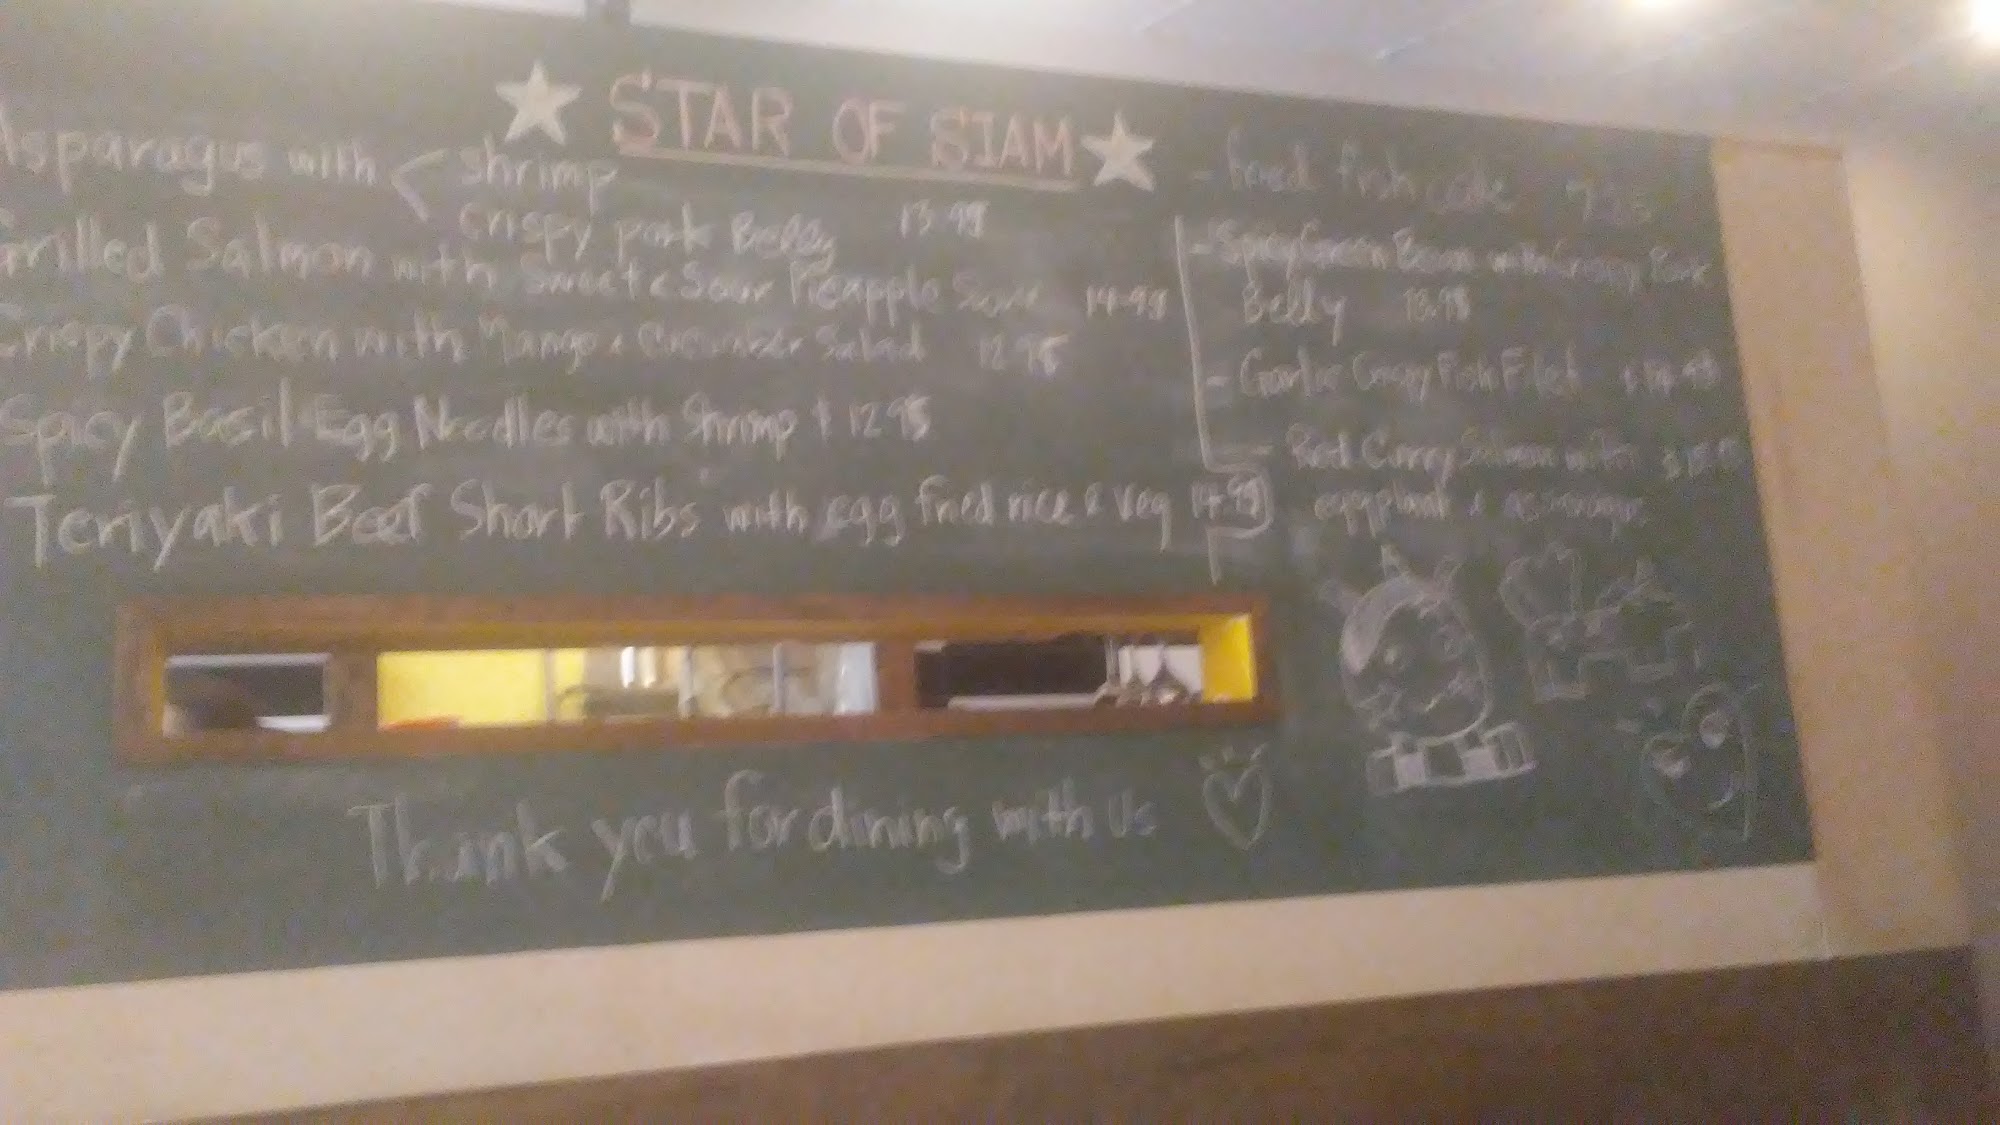 STAR OF SIAM
Asparagus with < shrimp
crispy pork Belly 13.95
Grilled Salmon with Sweet & Sour Pieapple Sauce 14.95
Crispy Chicken with Mango & Cucumber Salad 12.95
Spicy Basil Egg Noodles with Shrimp $ 12.95
Teriyaki Beef Short Ribs with egg fried rice & veg 14.95
- fried fish cake 7.95
- Spicy Green Bean with Crispy Pork
Belly 13.95
- Garlic Crispy Fish Filet $ 14.95
- Red Curry Salmon with
eggplant & asparagus
Thank you for dining with Us